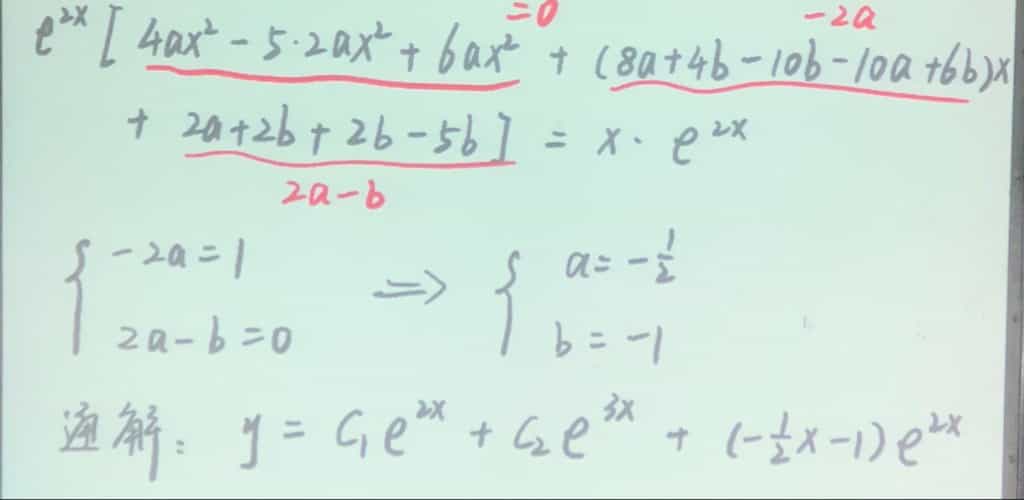 =0 -2a
e^{2x} [ 4ax² - 5·2ax² + 6ax² + (8a+4b-10b-10a+6b)x
+ 2a+2b+2b-5b ] = x · e^{2x}
2a-b
{ -2a=1 => { a=-1/2
2a-b=0 b=-1
通解: y = C₁e^{2x} + C₂e^{3x} + (-1/2x-1)e^{2x}